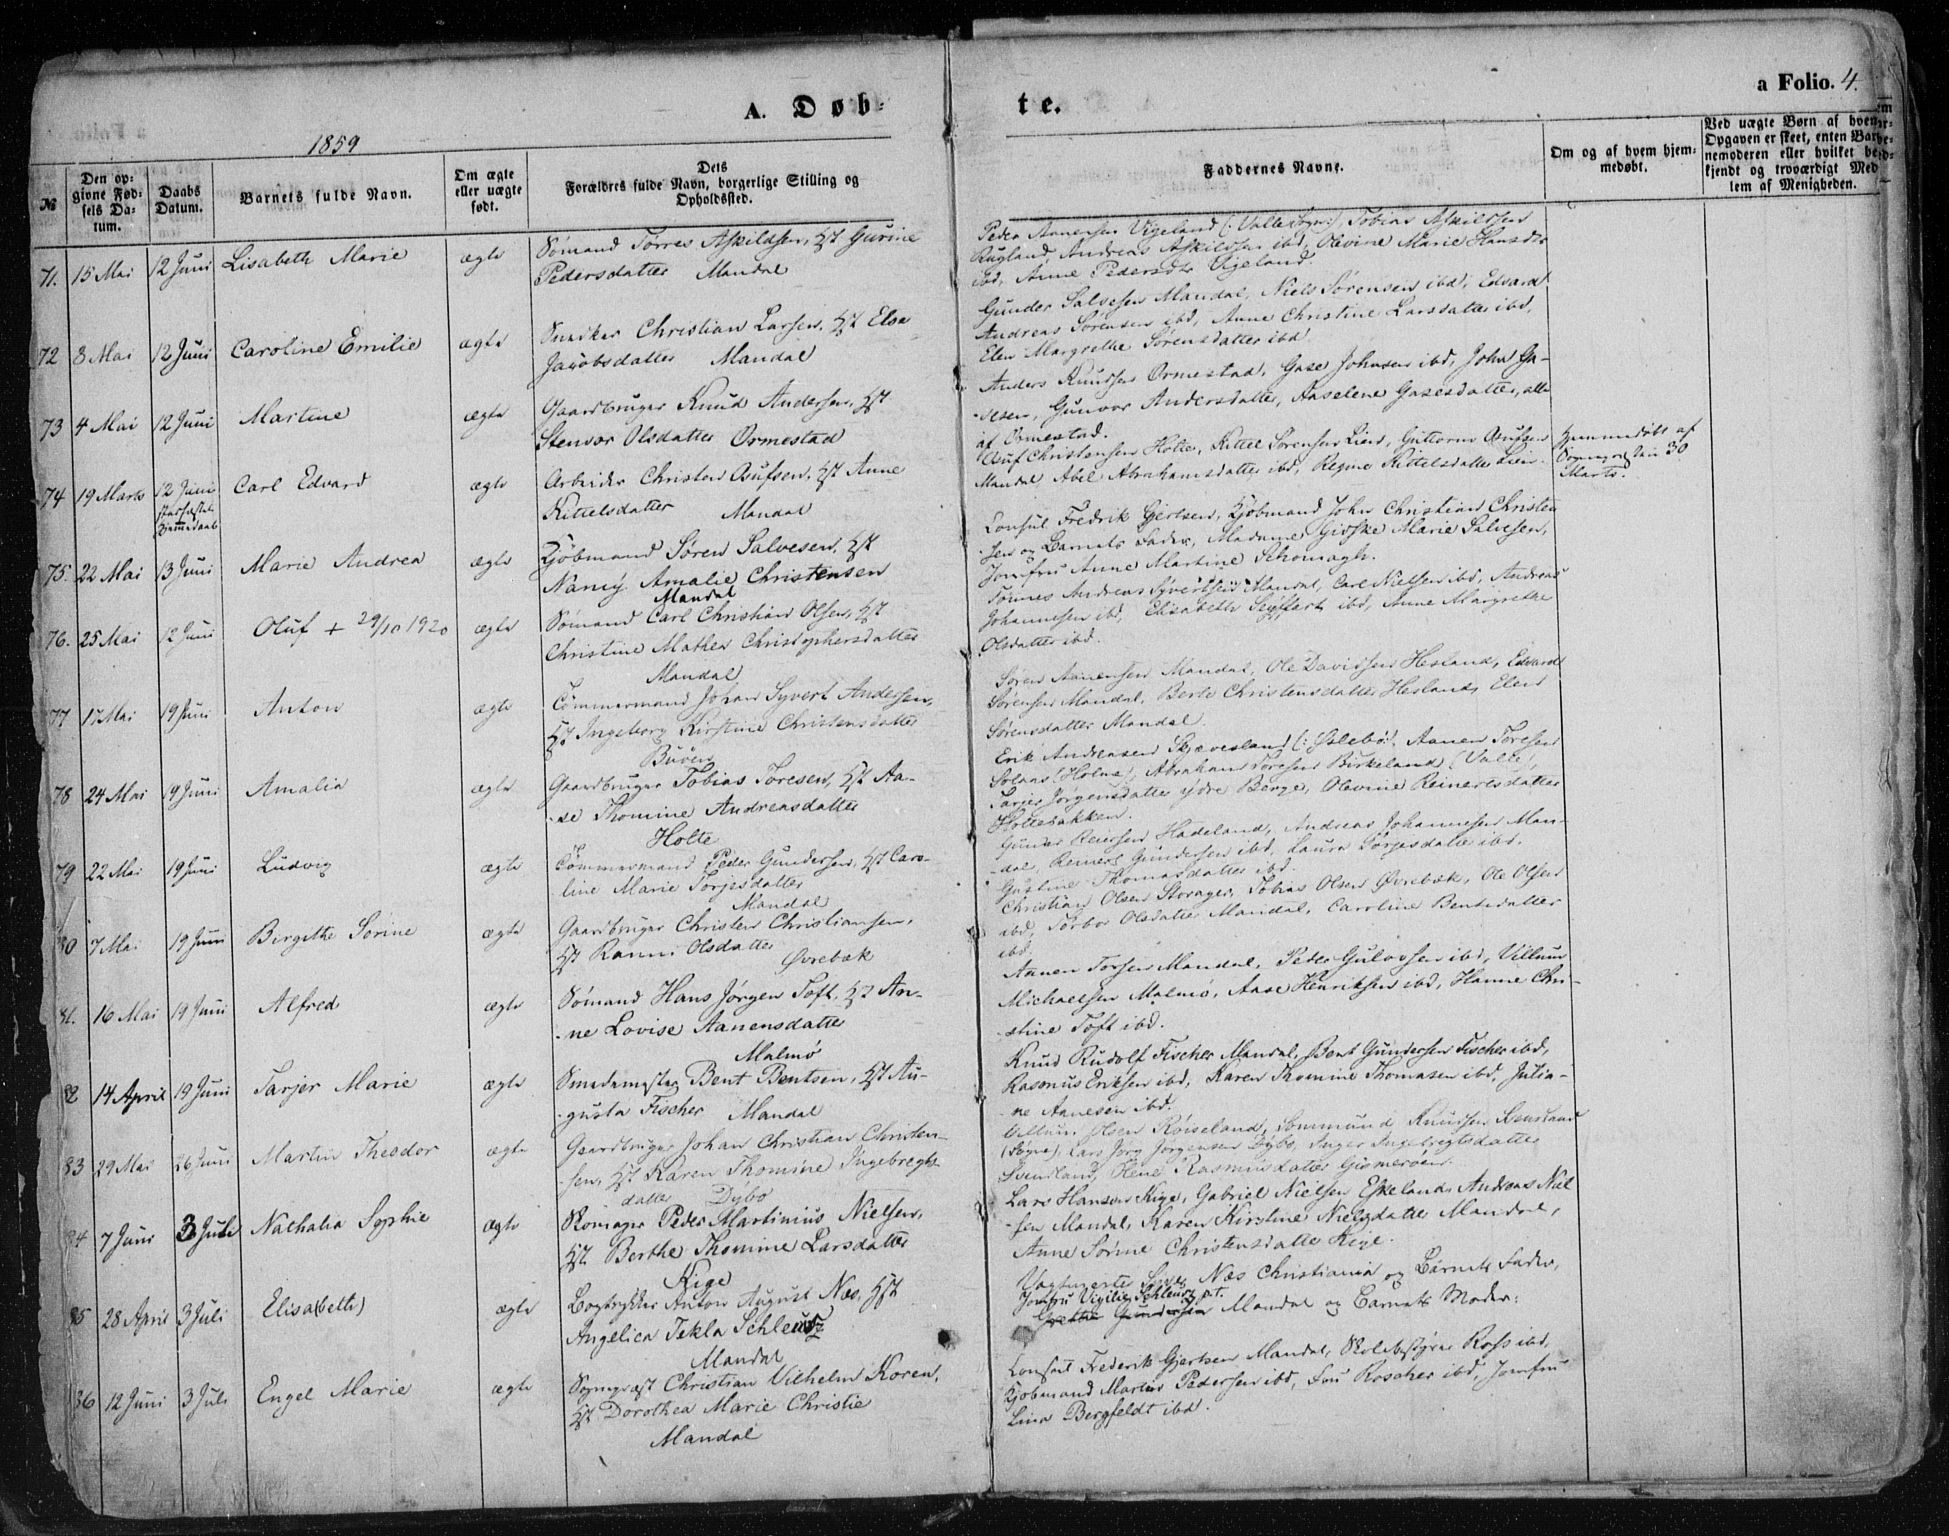 a Folio. 4.
A. Døb-
te.
1859
№
Den op-
givne Fød-
sels Da-
tum.
Daabs
Datum.
Barnets fulde Navn.
Om ægte
eller uægte
født.
Dets
Forældres fulde Navn, borgerlige Stilling og
Opholdssted.
Faddernes Navne.
Om og af hvem hjem-
medøbt.
Ved uægte Børn af hvem
Opgaven er skeet, enten Bar-
nemoderen eller hvilket be-
kjendt og troværdigt Med-
lem af Menigheden.
71. 15 Mai 12 Juni Lisabeth Marie ægte
Sømand Torres Askildsen, Hst Gurine
Pedersdatter Mandal
Peder Aanensen Vigeland (: Valle Sogn:), Tobias Askildsen
Rugland, Andreas Askildsen ibd, Olevine Marie Hansdtr
ibd, Anne Pedersdtr Vigeland.
72 8 Mai 12 Juni Caroline Emilie ægte
Snedker Christian Larsen, Hst Else
Jacobsdatter Mandal
Gunder Salvesen Mandal, Niels Sørensen ibd, Edvard
Andreas Sørensen ibd, Anne Christine Larsdatter ibd,
Elen Margrethe Sørensdatter ibd
73 4 Mai 12 Juni Martine ægte
Gaardbruger Knud Andersen, Hst
Stensor Olsdatter Ormestad
Anders Knudsen Ormestad, Gase Johnsen ibd, John Ga-
-sesen, Gunvor Andersdatter, Aaselene Gasesdatter, alle
af Ormestad.
74 19 Marts 12 Juni
stadfæstet
Hjemmedaab
Carl Edvard ægte
Arbeider Christen Aufsen, Hst Anne
Kittelsdatter Mandal
Auf Christensen Holte, Kittel Sørensen Lien, Guttorm Aufsen
Mandal, Abel Abrahamsdatter ibd, Regine Kittelsdatter Lien.
Hjemmedøbt af
den 30
Marts.
75. 22 Mai 13 Juni Marie Andrea ægte
Kjøbmand Søren Salvesen, Hst
Nancy Amalie Christensen
Mandal
Consul Fredrik Gjertsen, Kjøbmand John Christian Christen
-sen og Barnets Fader, Madame Gidske Marie Salvesen,
Jomfru Anne Martine Schomagh.
76. 25 Mai 12 Juni Oluf + 29/10 1920 ægte
Sømand Carl Christian Olsen, Hst
Christine Mathea Christophersdatter
Mandal
Tønnes Andreas Syvertsen Mandal, Carl Nielsen ibd, Andreas
Johannesen ibd, Elisabeth Seyffert ibd, Anne Margrethe
Olsdatter ibd.
77 17 Mai 19 Juni Anton ægte
Tømmermand Johan Syvert Andersen,
Hst Ingeborg Kirstine Christensdatter
Buøen
Søren Aanensen Mandal, Ole Davidsen Hesland, Edvard
Sørensen Mandal, Berte Christensdatter Hesland, Elen
Sørensdatter Mandal.
78 24 Mai 19 Juni Amalia ægte
Gaardbruger Tobias Toresen, Hst Aa-
-se Thomine Andreasdatter
Holte
Erik Andreasen Skjævesland (: Øslebø:), Aanen Toresen
Solaas (Holme), Abraham Toresen Birkeland (Valle),
Tarjer Jørgensdatter ydre Berge, Olevine Reinertsdatter
Holtebakken.
79 22 Mai 19 Juni Ludvig ægte
Tømmermand Peder Gundersen, Hst Caro-
line Marie Torjesdatter
Mandal
Gunder Hadeland, Andreas Johannesen Man-
-dal, Reinert Gundersen ibd, Laura Torjesdatter ibd.
Gustine Thomasdatter ibd.
80 7 Mai 19 Juni Birgithe Sorine ægte
Gaardbruger Christen Christiansen,
Hst Ranni Olsdatter
Øvrebæk
Christian Olsen Storager, Tobias Olsen Øvrebæk, Ole Olsen
ibd, Torbor Olsdatter Mandal, Caroline Bentsdatter
ibd
81. 16 Mai 19 Juni Alfred ægte
Sømand Hans Jørgen Toft, Hst An-
-ne Lovise Aanensdatter
Malmø
Aanen Torsen Mandal, Peder Gulovsen ibd, Villum
Michaelsen Malmø, Aase Henriksen ibd, Hanne Chri-
-stine Toft ibd.
82 14 April 19 Juni Tarjer Marie ægte
Smedemester Bent Bentsen, Hst Au-
-gusta Fischer Mandal
Knud Rudolf Fischer Mandal, Bent Gundersen Fischer ibd,
Rasmus Eriksen ibd, Karen Thomine Thomasen ibd, Julia-
-ne Aanesen ibd.
83 29 Mai 26 Juni Martin Theodor ægte
Gaardbruger Johan Christian Christen-
-sen, Hst Karen Thomine Ingebregts-
datter Dybo
Villum Røiseland, Sommund Knudsen
(Søgne), Lars Jørg Jørgensen Dybo, Inger Ingebregtsdatter
Svensland, Elene Rasmusdatter Gismerøen.
84 7 Juni 3 Juli Nathalia Sophie ægte
Skomager Peder Martinius Nielsen,
Hst Berthe Thomine Larsdatter
Kige
Lars Hansen Kige, Gabriel Nielsen Eskeland, Andreas Niel
-sen Mandal, Karen Kirstine Nielsdatter Mandal,
Anne Sorine Christensdatter Kige.
85 28 April 3 Juli Elisa(beth) ægte
Bogtrykker Anton August Næs, Hst
Angelica Tekla Schleusz
Mandal
Næs Christiania og Barnets Fader,
Jomfru Vigilie Schleusz p.t.
Grethe Gundersen Mandal og Barnets Moder:
86 12 Juni 3 Juli Engel Marie ægte
Sogneprest Christian Vilhelm Koren,
Hst Dorothea Marie Christie
Mandal
Consul Frederik Gjertsen Mandal, Skolebestyrer Ross ibd,
Kjøbmand Martin Pedersen ibd, Fru Roscher ibd, Jomfru
Lina Bergfeldt ibd.